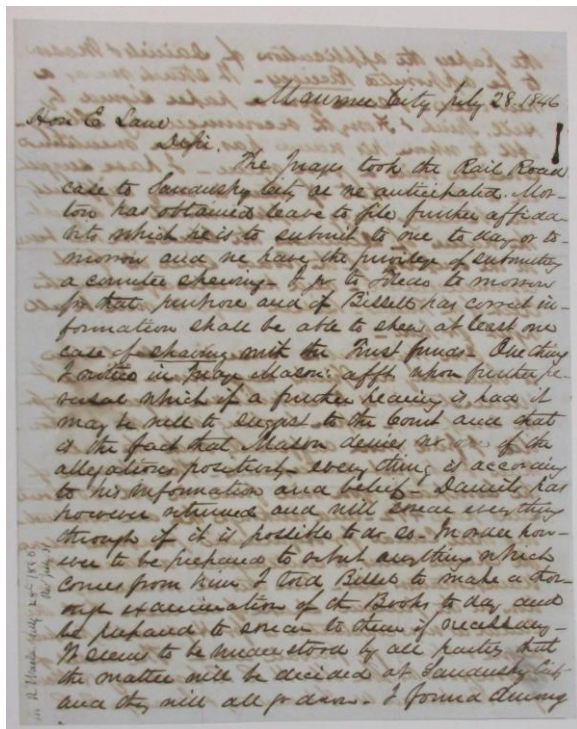 Maumee City July 28, 1846
Hon E Lane
Dr Sir.
The Judges took the Rail Road
case to Sandusky City as we anticipated. Mor-
ton has obtained leave to file further affida-
vits which he is to submit to me to day or to-
morrow and we have the privilege of submitting
a counter shewing - I go to Toledo to morrow
for that purpose and if Bissell has correct in-
formation shall be able to shew at least one
case of shaving with the Trust funds - One thing
I notice in Judge Mason's afft upon further pe-
rusal which if a further hearing is had it
may be well to suggest to the Court and that
is the fact that Mason denies no one of the
allegations positively - every thing is according
to his information and belief - Daniels has
however returned and will swear everything
through if it is possible to do so - In order how-
ever to be prepared to rebut anything which
comes from him I told Bissell to make a thor-
ough examination of the Books to day and
be prepared to swear to them if necessary -
It seems to be understood by all parties that
the matter will be decided at Sandusky City
and they will all go down - I found among